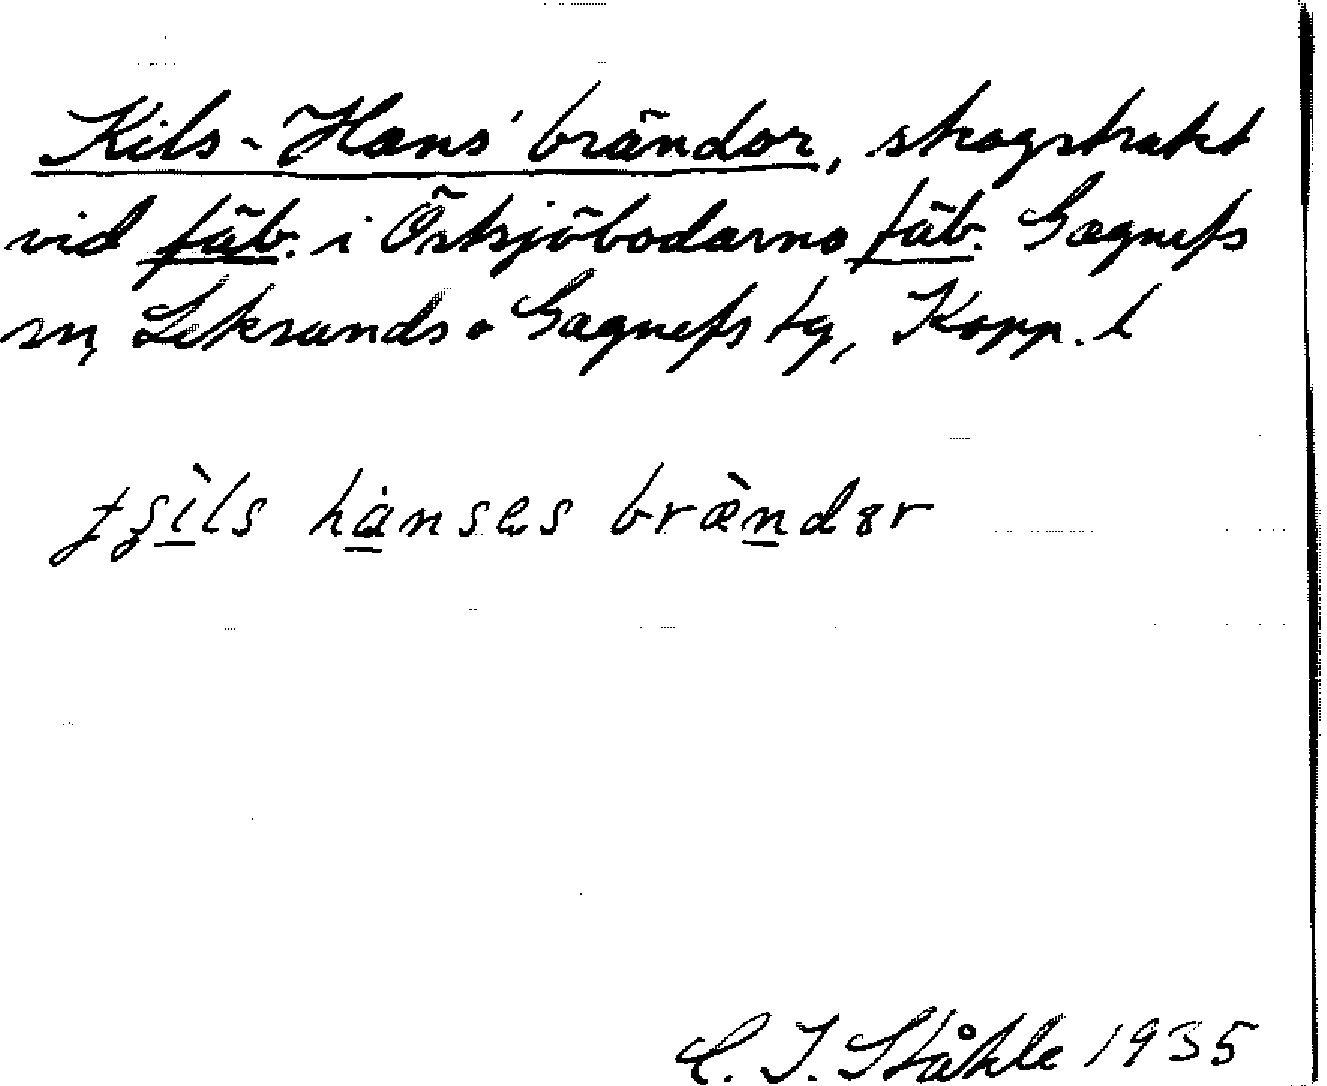 Kils-Hans' brändor, skogstrakt
vid fäb. i Östsjöbodarna fäb. Gagnefs
sn, Leksands o Gagnefs tg, Kopp. l
hanses brændər
C. I. Ståhle 1935